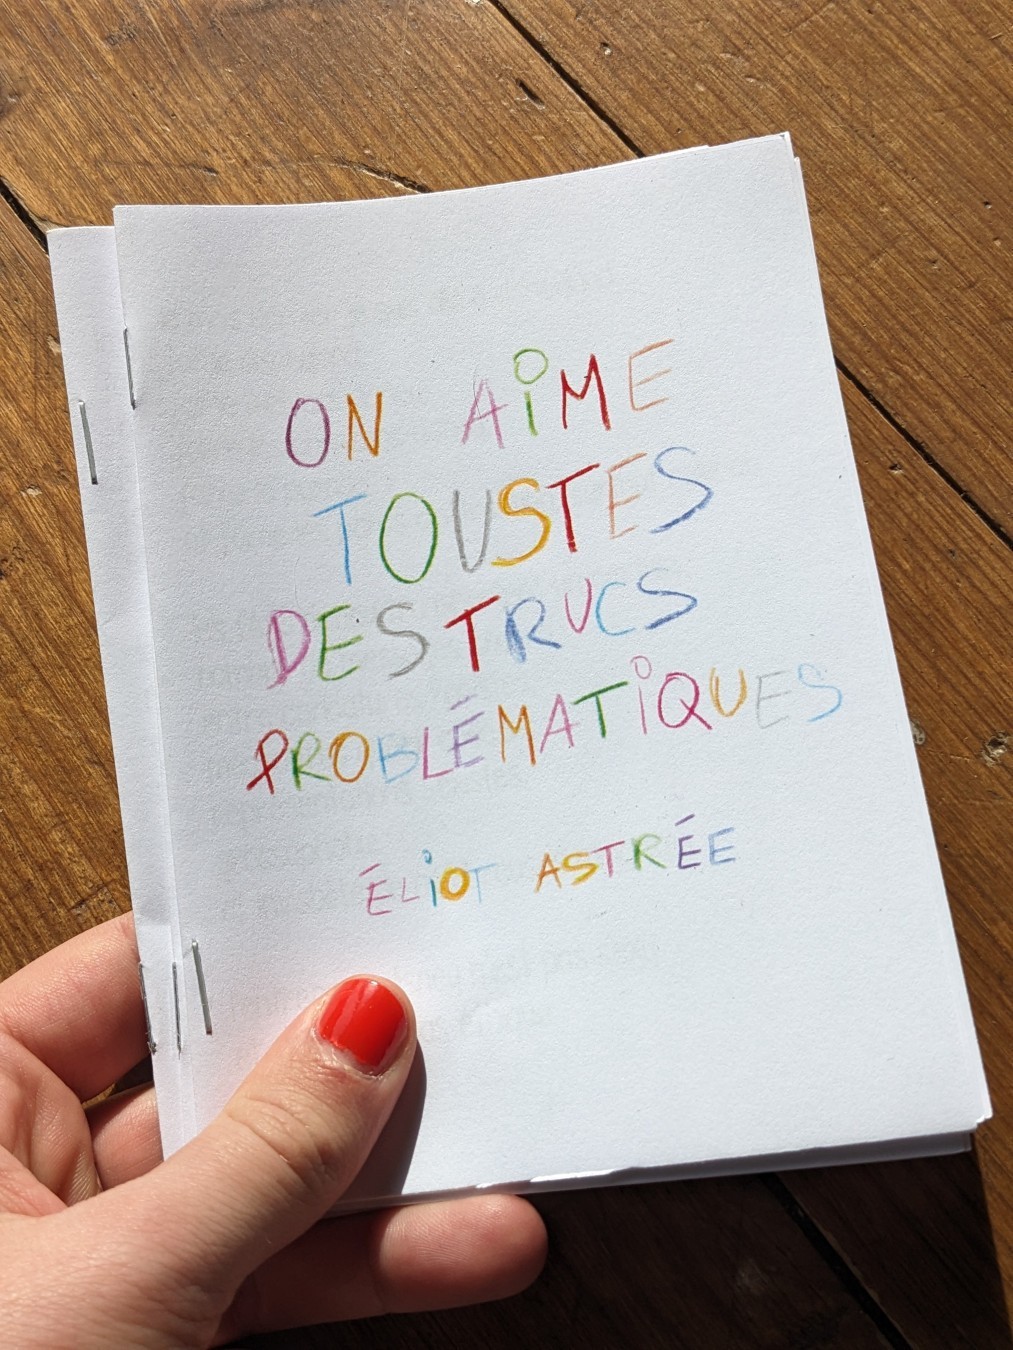 ON AiME
TOUSTES
DES TRUCS
PROBLÉMATiQUES
ÉLiOT ASTRÉE